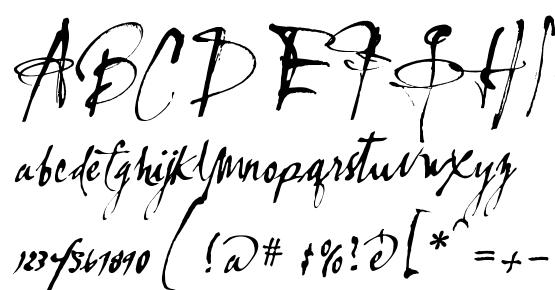 A B C D E F G H I
abcdefghijklmnopqrstuvwxyz
1234567890 ( ! @ # $ % ? & [ * ^ = + -